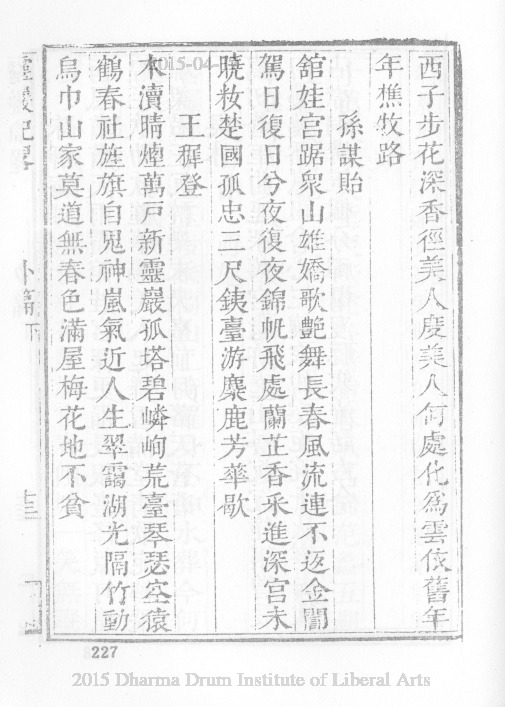 西子步花深香徑美人度美人何處化爲雲依舊年
年樵牧路
孫謀貽
舘娃宫踞衆山雄嬌歌艶舞長春風流連不返金閶
駕日復日兮夜復夜錦帆飛處蘭芷香釆進深宫未
曉妝楚國孤忠三尺銕臺游麋鹿芳華歇
王穉登
木瀆晴煙萬戸新靈巖孤塔碧嶙峋荒臺琴瑟空猿
鶴春社旌旗自鬼神嵐氣近人生翠靄湖光隔竹動
烏巾山家莫道無春色滿屋梅花地不貧
靈巖紀畧
外篇下
十三
2015-04
227
2015 Dharma Drum Institute of Liberal Arts